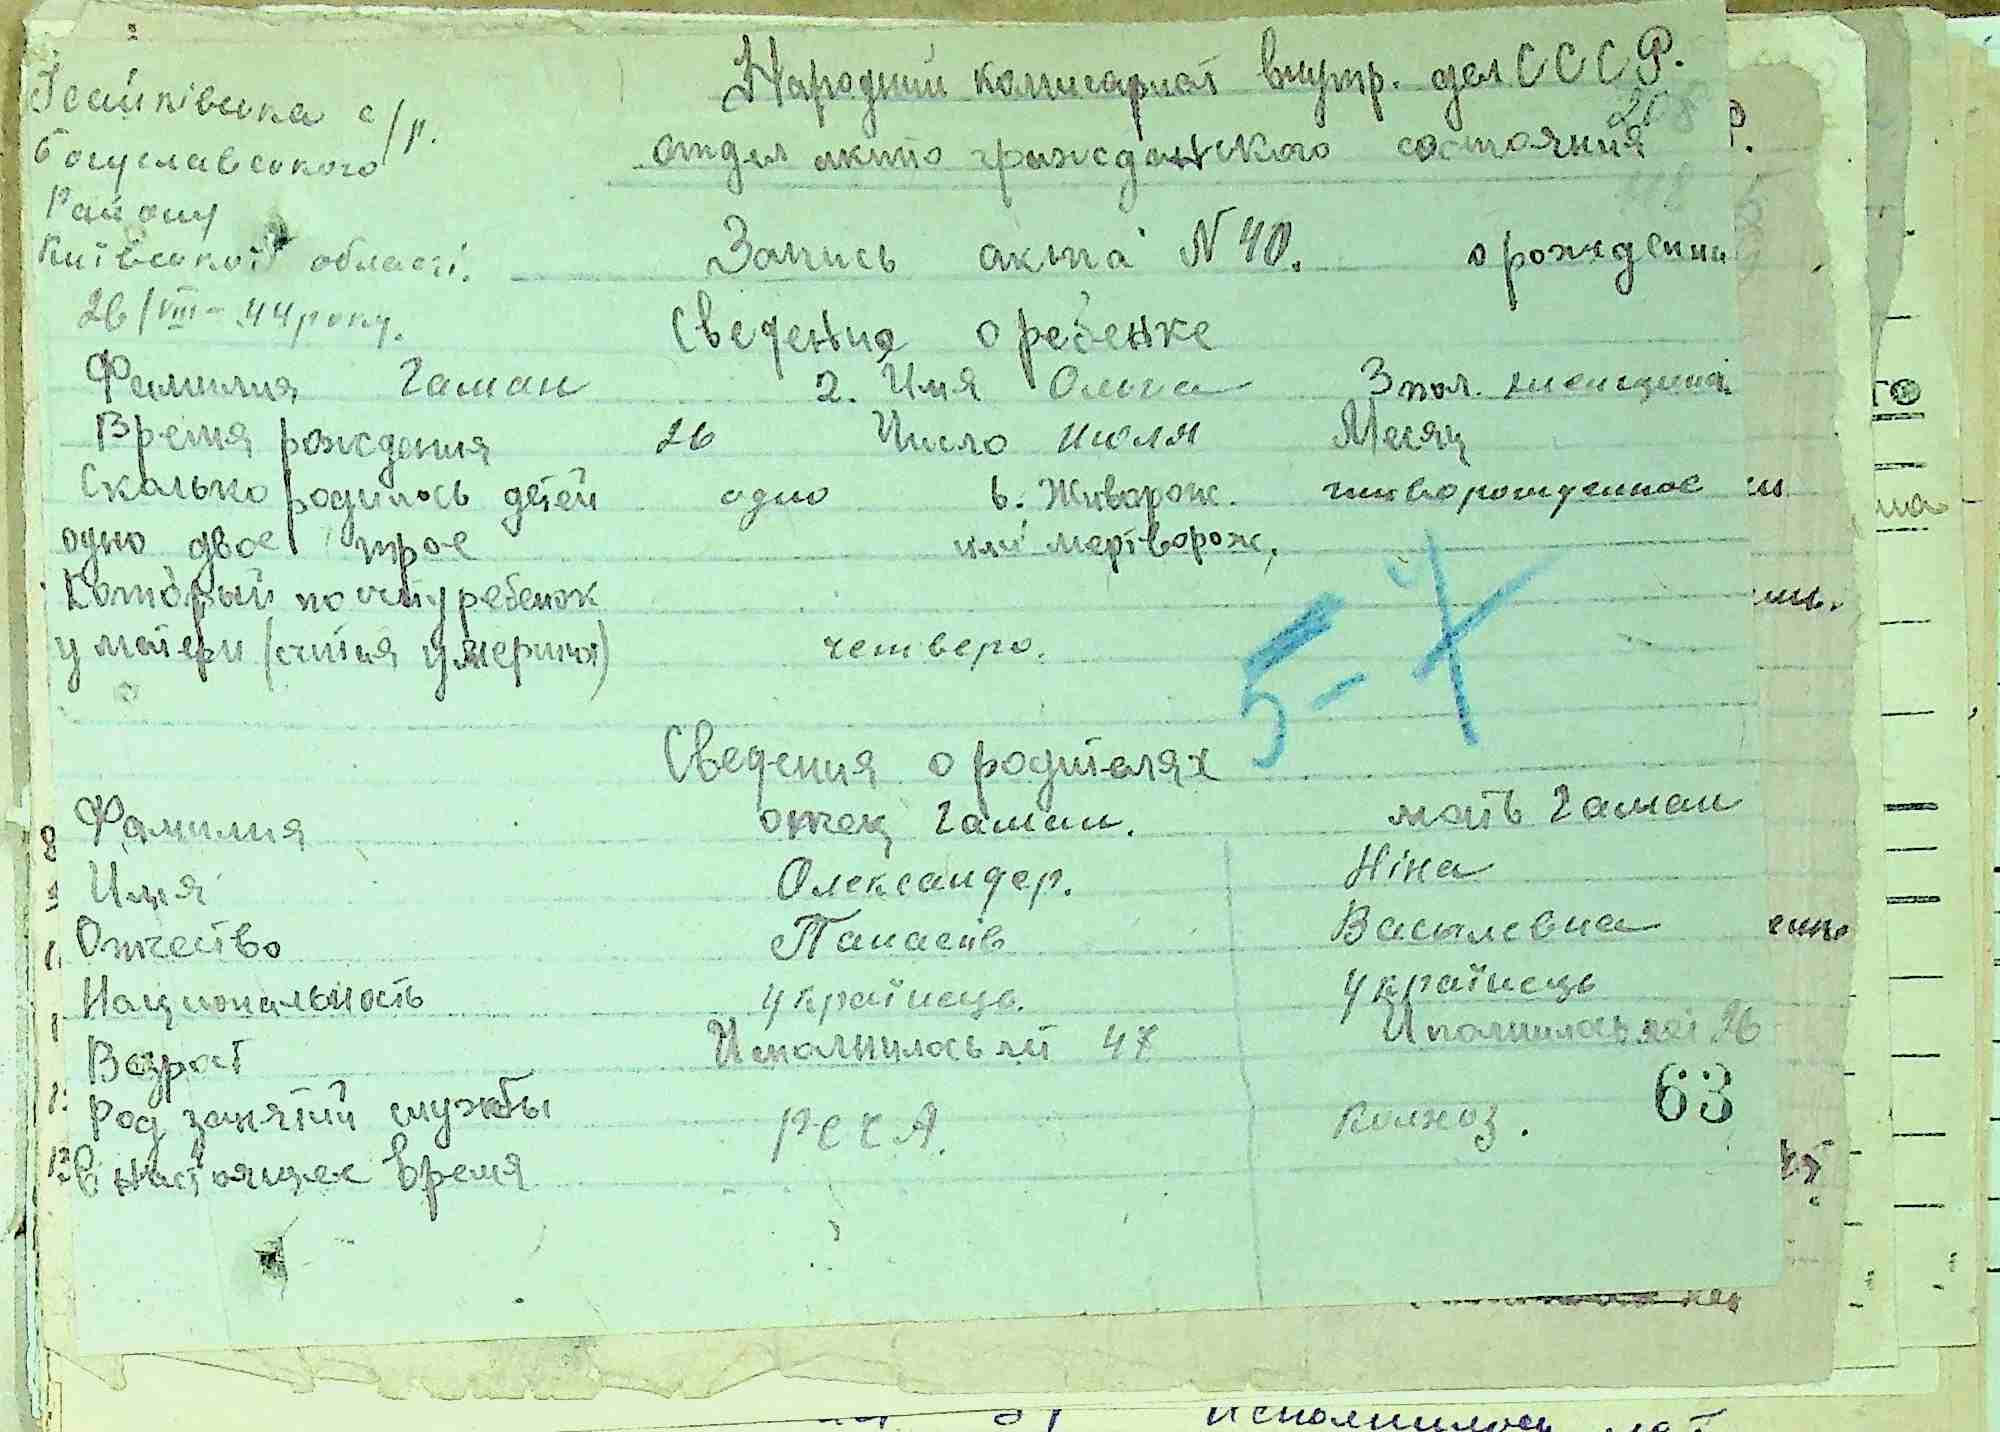 Ісайківська с/р.
Богуславського
Району
Київської області.
26/VIII - 44 року.
Народний комисариат внутр. дел СССР.
отдел актів гражданского состояния
Запись акта N 40. о рождении
Сведения о ребенке
Фамилия Гаман 2. Имя Ольга 3 пол. женщина
Время рождения 26 Число июля Месяц
Сколько родилось детей одно 6. Живорож. живорожденное
одно двое трое или мертворож.
Который по счету ребенок
у матери (считая умерших) четверо.
5-
Сведения о родителях
Фамилия отец Гаман. мать Гаман
Имя Олександер. Ніна
Отчество Панасів Васылевна
Национальность українець. українець
Возрат Исполнилось лет 47 Исполнилось лет 26
63
Род занятий службы РККА. колхоз.
в настоящее время
исполнилось лет